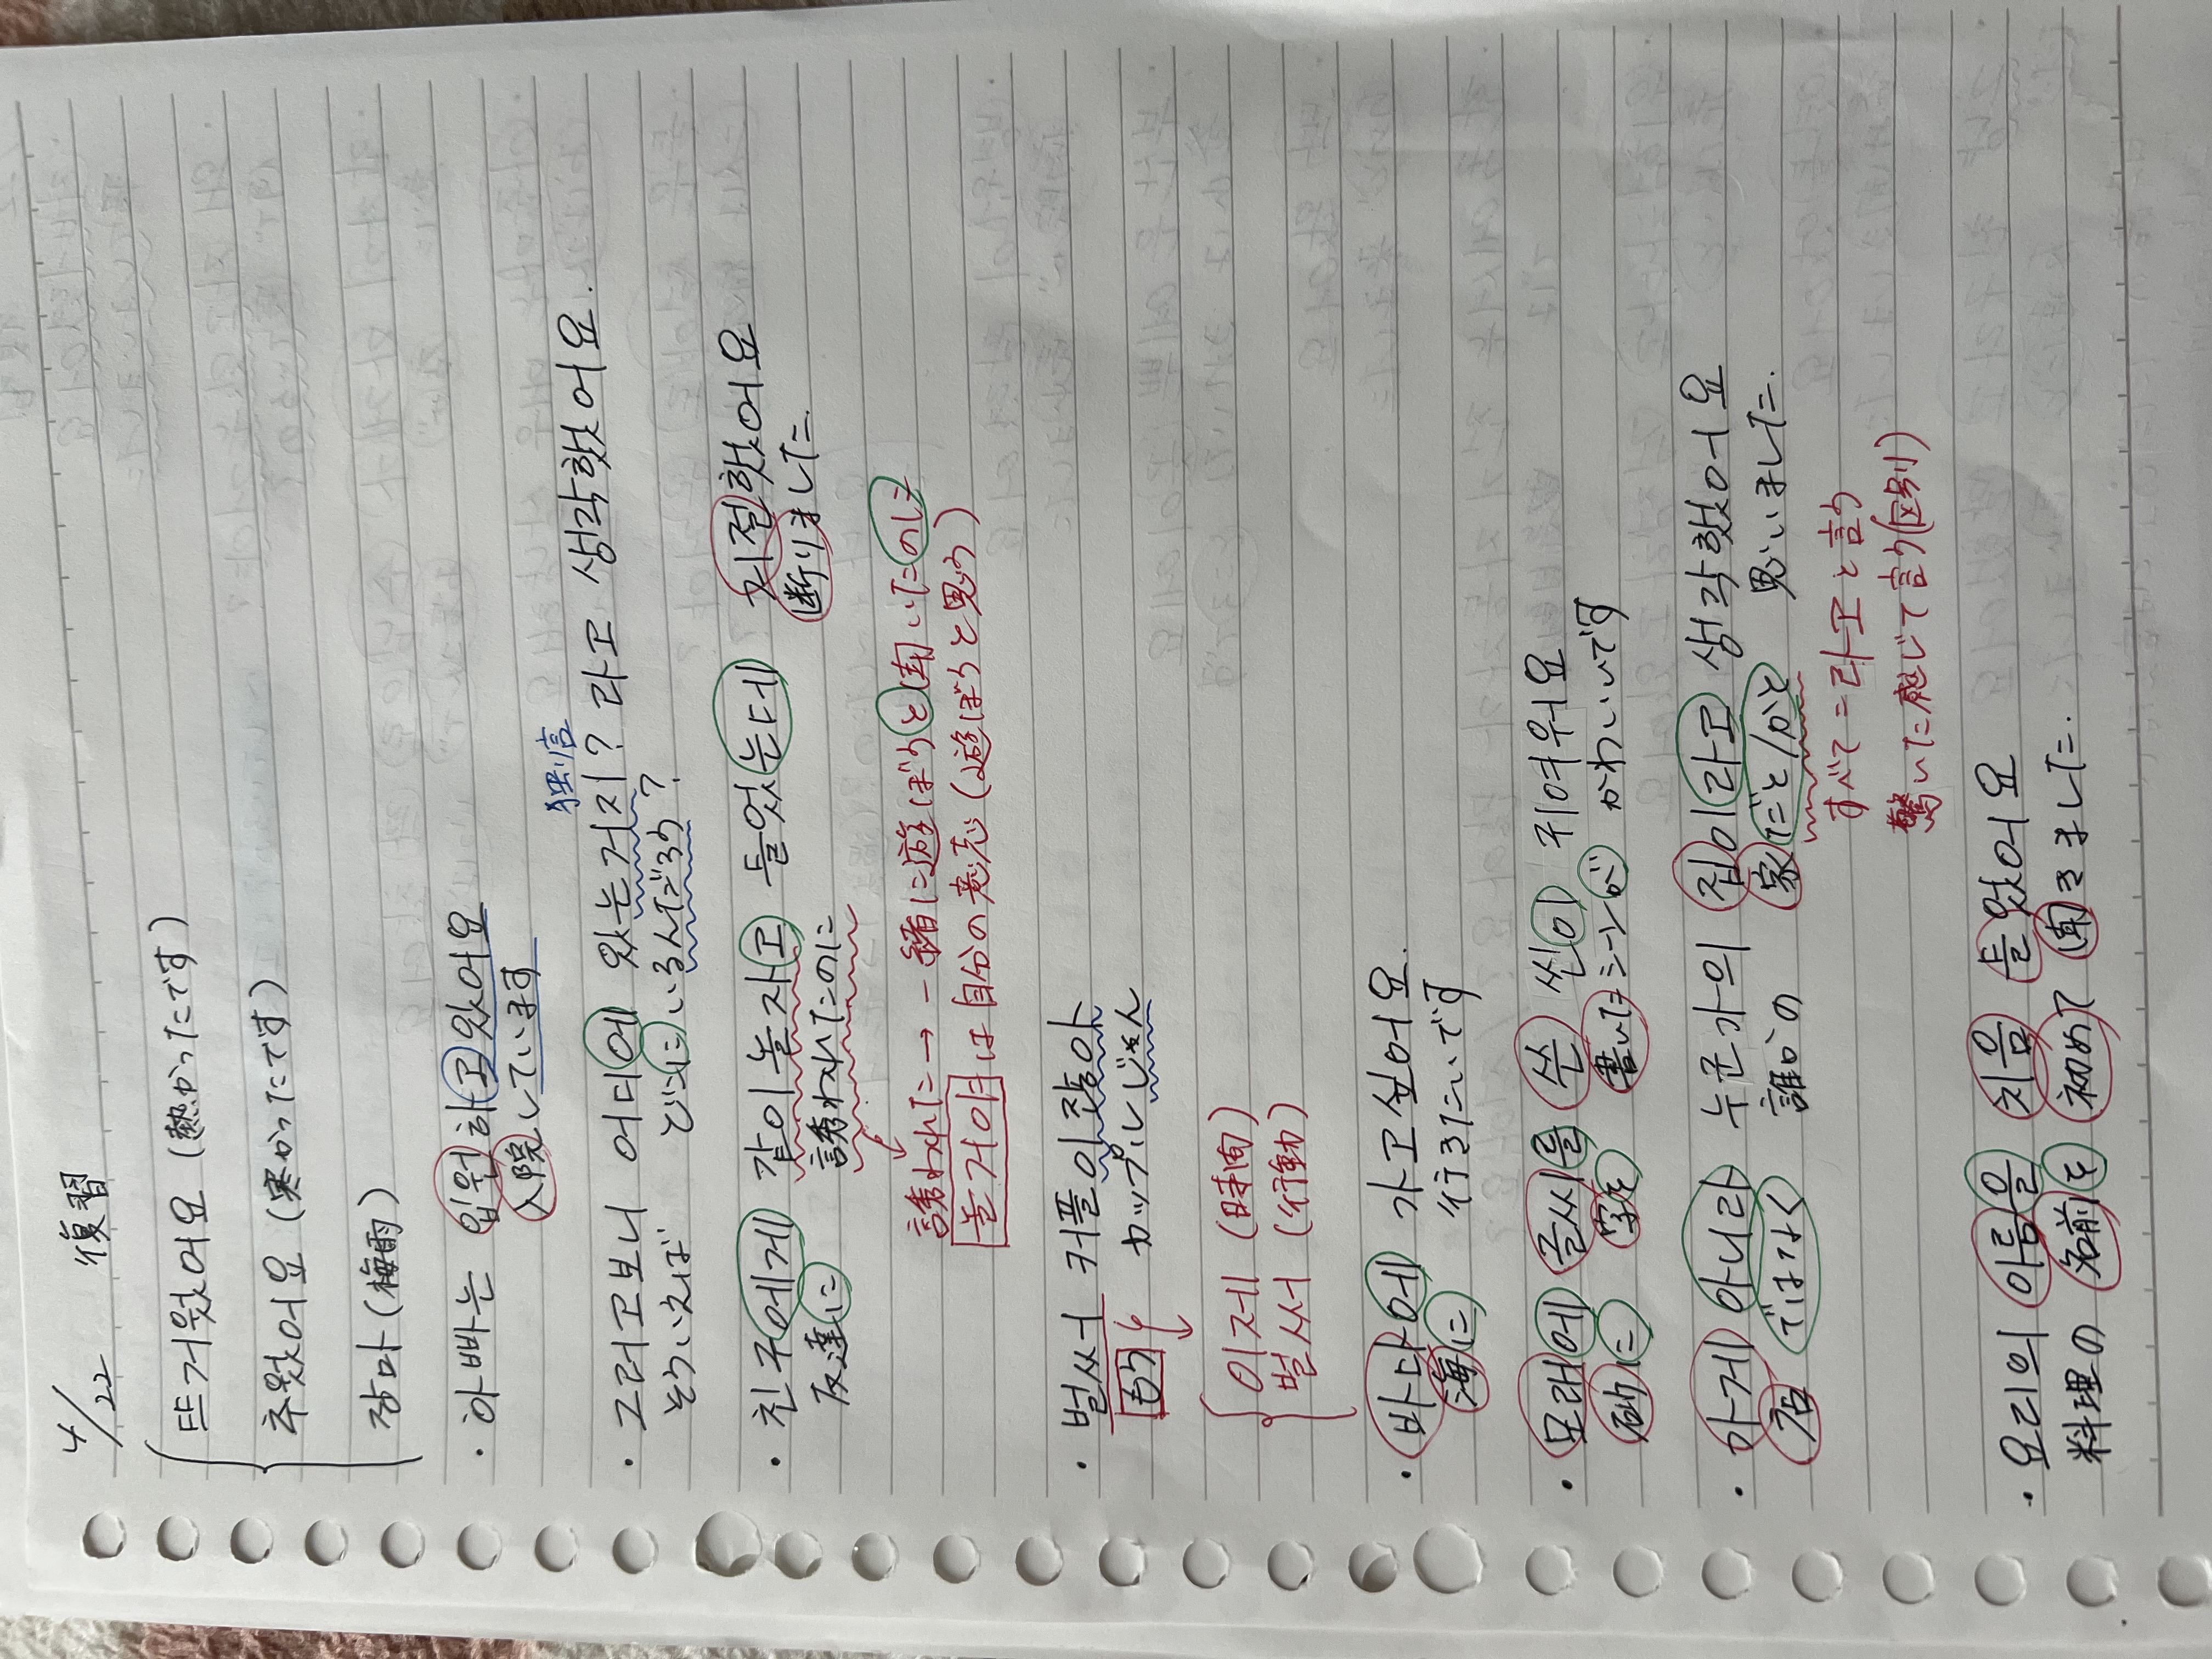 4/22 復習
뜨거웠어요 (熱かったです)
추웠어요 (寒かったです)
장마 (梅雨)
・아빠는 입원하고있어요
入院しています
独り言
・그러고보니 어디에 있는거지? 라고 생각했어요.
そういえば どこに いるんだろう?
・친구에게 같이놀자고 들었는데 거절했어요
友達に 誘われたのに 断りました
誘われた→一緒に遊ぼうと聞いたのに
놀거야は自分の意志(遊ぼうと思う)
・벌써 커플이잖아
もう カップルじゃん
이제 (時間)
벌써 (行動)
・바다에 가고싶어요.
海に 行きたいです
・모래에 글씨를 쓴 씬이 귀여워요
砂に 字を 書いたシーンが かわいいです
・가게 아니라 누군가의 집이라고 생각했어요
店 ではなく 誰かの 家だと/かと 思いました.
すべて=라고と言う
驚いた感じで言う(区別)
・요리의 이름을 처음 들었어요
料理の 名前を 初めて 聞きました.